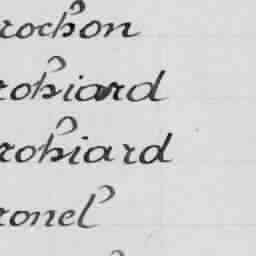 rochon
rohiard
rohiard
ronel